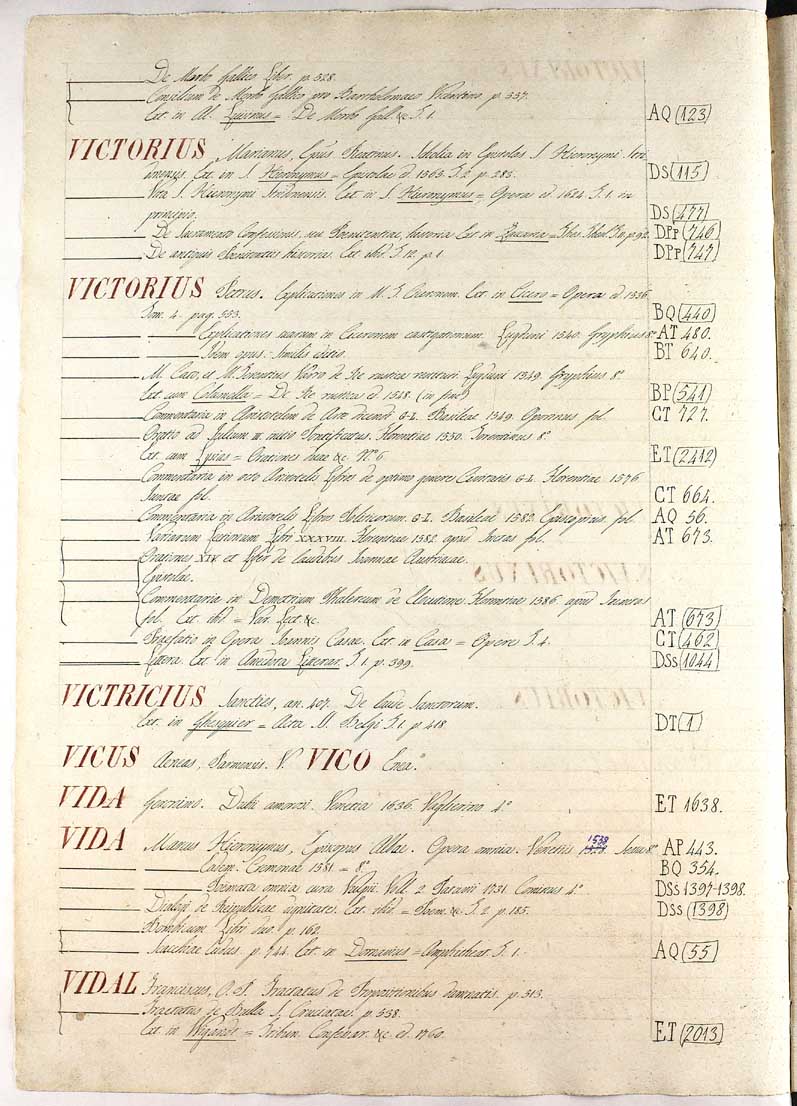 De Morbo Gallico Liber. p. 328.
Consilium de Morbo Gallico pro Bartholomaeo Vicentino. p. 337.
Ext. in Al. Luisinus = De Morbo Gall. &c. T. 1. AQ 123
VICTORIUS Marianus, Epũs Reatinus. Scholia in Epistolas S. Hieronymi Stri-
donensis. Ext. in S. Hieronymus = Epistolae d. 1565. T. 2. p. 285. DS 115
Vita S. Hieronymi Stridonensis. Ext. in S. Hieronymus = Opera d. 1684. T. 1. in
principio. DS 477
De Sacramento Confessionis, seu Poenitentiae, historia. Ext. in = Thes. Theol. p. 92. DPp 746
De antiquis Poenitentiis historia. Ext. ibid. T. 12. p. 1. DPp 747
VICTORIUS Petrus. Explicationes in M. T. Ciceronem. Ext. in Cicero = Opera d. 1536.
Tom. 4. pag. 533. BQ 440
Explicationes suarum in Ciceronem castigationum. Lugduni 1540. Gryphius 8º AT 480.
Idem opus. Similis editio. BT 640.
M. Cato, et M. Terentius Varro de Re rustica restituti. Lugduni 1549. Gryphius 8º
Ext. cum Columella = De Re rustica d. 1548. (in fine) BP 541
Commentaria in Aristotelem de Arte dicendi G-L. Basileae 1549. Oporinus fol. CT 727.
Oratio ad Julium III. initio Pontificatus. Florentiae 1550. Torentinus 8º
Ext. cum Lysias = Orationes duae &c. Nº 6. ET 2412
Commentaria in octo Aristotelis Libros de optimo genere Civitatis G-L. Florentiae 1576.
Juntae fol. CT 664.
Commentaria in Aristotelis Libros Politicorum. G-L. Basileae 1582. Episcopius fol. AQ 56.
Variarum Lectionum Libri XXXVIII. Florentiae 1582. apud Junctas fol. AT 673.
Orationes XIV. et Liber de laudibus Joannae Austriacae.
Epistolae.
Commentaria in Demetrium Phalereum de Elocutione. Florentiae 1586. apud Junctas
fol. Ext. ibid = Var. Lect. &c. AT 673
Praefatio in Opera Joannis Casae. Ext. in Casa = Opere T. 4. CT 462
Littera. Ext. in Anecdota Litterar. T. 1. p. 399. DSs 1044
VICTRICIUS Sanctus, an. 407. De laude Sanctorum.
Ext. in Ghesquier = Acta SS. Belgi T. 1. p. 418. DT 1
VICUS Aeneas, Parmensis. V. VICO Enea.
VIDA Geronimo. Dubii amorosi. Venetia 1636. Vaglierino 4º ET 1638.
VIDA Marcus Hieronymus, Episcopus Albae. Opera omnia. Venetiis 1538. 8º AP 443.
Eadem. Cremonae 1581 = 8º. BQ 354.
Poemata omnia cura Vulpii. Voll. 2. Patavii 1731. Cominus 4º DSs 1397-1398.
Dialogi de Reipublicae dignitate. Ext. ibid = Poem. &c. T. 2. p. 185. DSs 1398
Bombicum. Libri duo. p. 162.
Scacchiae Ludus. p. 744. Ext. in Dornavius = Amphitheat. T. 1. AQ 55
VIDAL Franciscus, O. P. Tractatus de Propositionibus damnatis. p. 513.
Tractatus de Bulla S. Cruciatae. p. 538.
Ext. in Wigandt = Tribun. Confessar. &c. d. 1760. ET 2013